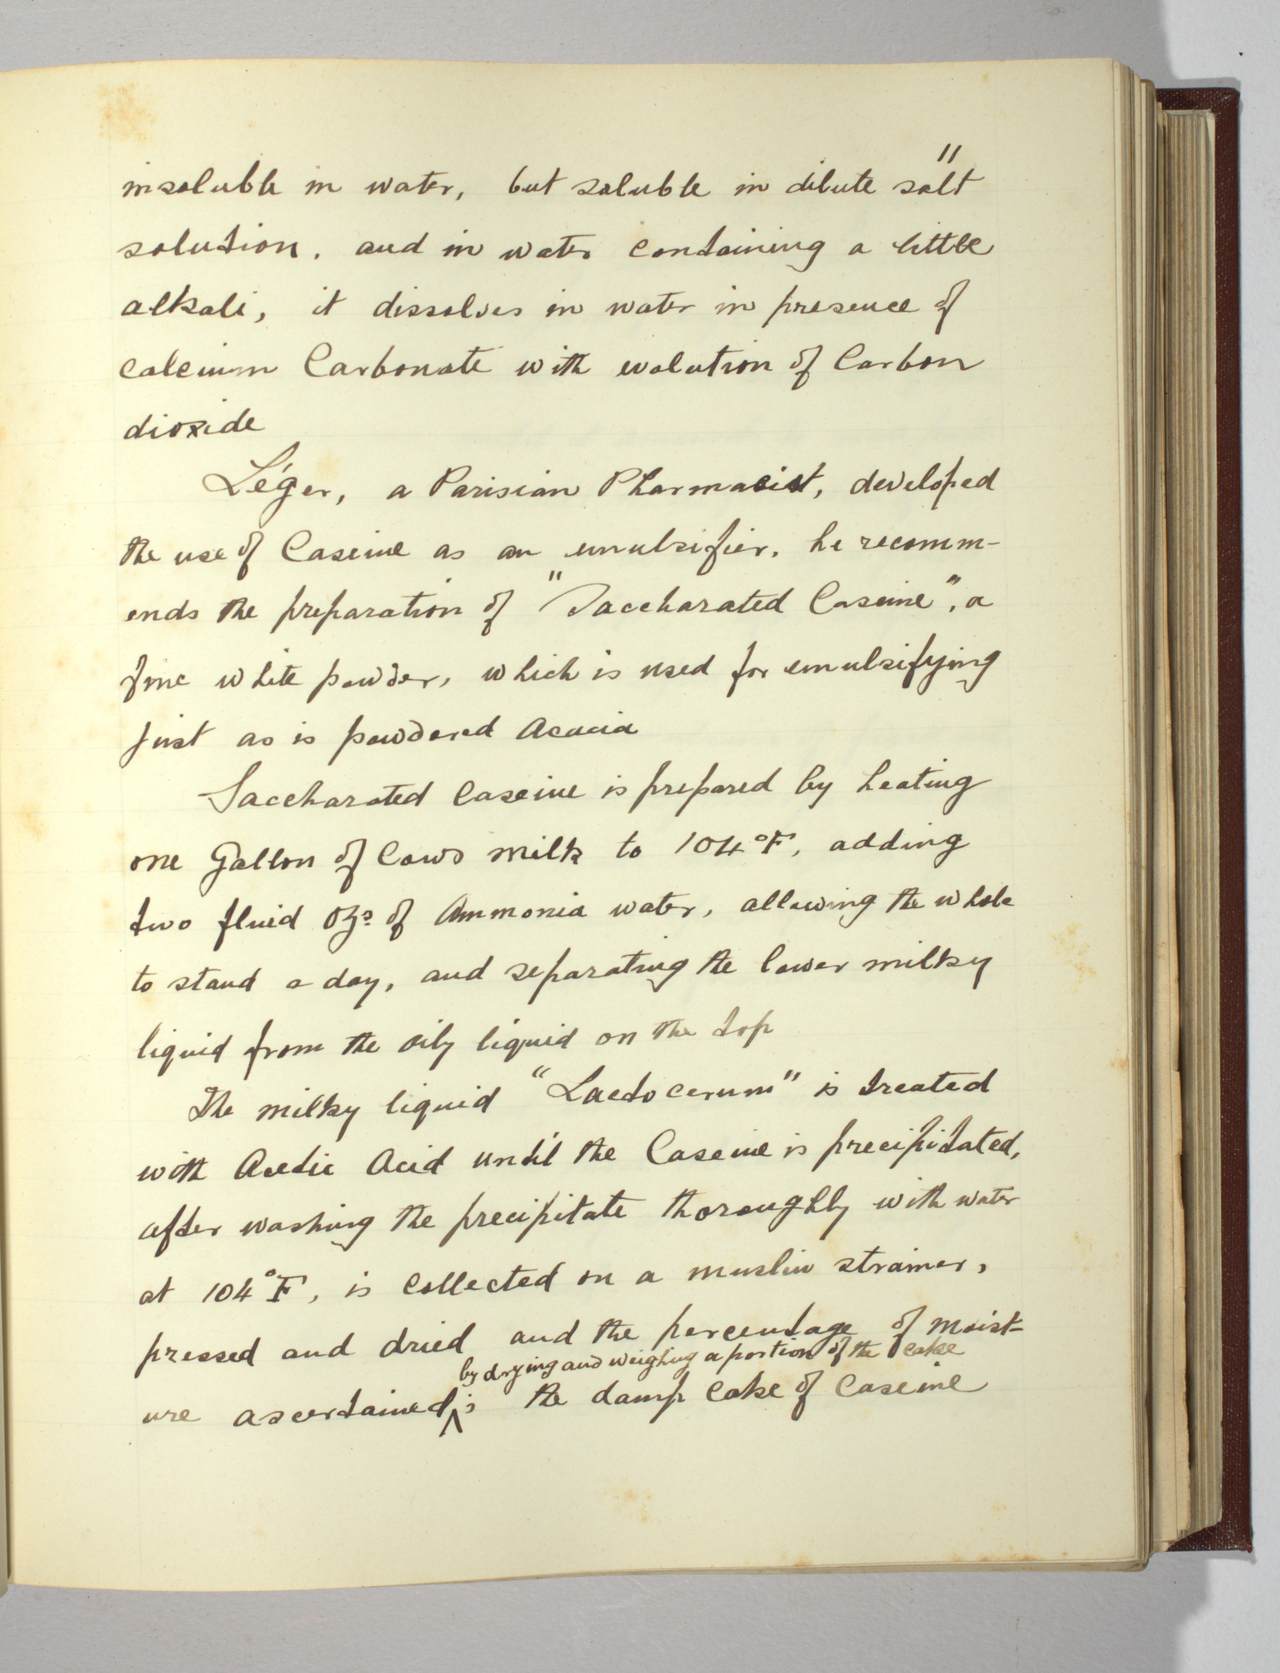 11
insoluble in water, but soluble in dilute salt
solution, and in water containing a little
alkali, it dissolves in water in presence of
Calcium Carbonate with evolution of Carbon
dioxide
Léger, a Parisian Pharmacist, developed
the use of Caseine as an emulsifier, he recomm-
ends the preparation of "Saccharated Caseine", a
fine white powder, which is used for emulsifying
just as is powdered Acacia
Saccharated Caseine is prepared by heating
one Gallon of Cows milk to 104°F, adding
two fluid Ozs of Ammonia water, allowing the whole
to stand a day, and separating the lower milky
liquid from the oily liquid on the top
The milky liquid "Lactocerum" is treated
with Acetic Acid until the Caseine is precipitated,
after washing the precipitate thoroughly with water
at 104°F, is collected on a muslin strainer,
pressed and dried and the percentage of moist-
by drying and weighing a portion of the cake
ure ascertained; the damp Cake of Caseine